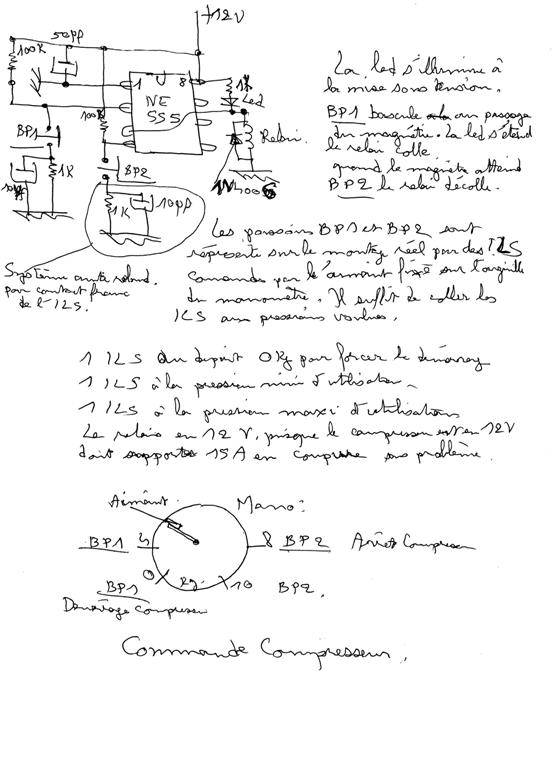 +12V
50pf
100K
1 U 8
NE
555
1K
Led
100K
BP1
Relai
BP2
1K
1N4006
1K
10pf
Système anti rebond
par contact franc
de l'ILS.
La led s'illumine à
la mise sous tension.
BP1 bascule au passage
du magnétic. La led s'éteind
le relai colle.
quand le magnétic atteind
BP2 le relai décolle.
Les poussoirs BP1 et BP2 sont
représenté sur le montage réel par des ILS
Comandés par le l'aimant fixé sur l'aiguille
du manomètre. Il suffit de coller les
ILS aux pressions voulues.
1 ILS au départ 0Kg pour forcer le démarrage
1 ILS à la pression mini d'utilisation
1 ILS à la pression maxi d'utilisation
Le relais en 12 V, puisque le compresseur est en 12V
doit supporter 15A en sans problème.
Aimant
Mano:
BP1 5
8 BP2 Arrêt Compresseur
BP1 0 Kg 10 BP2.
Démarage Compresseur
Commande Compresseur.